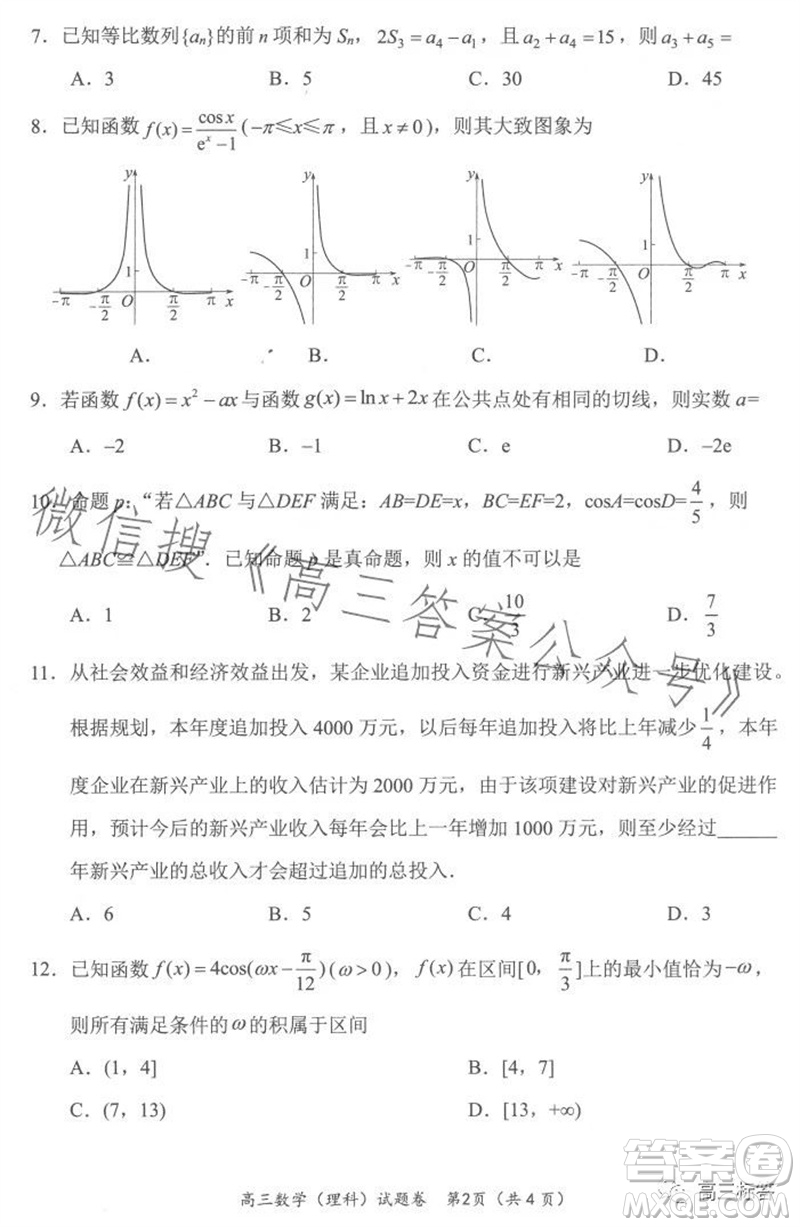 7．已知等比数列{aₙ}的前 n 项和为 Sₙ，2S₃＝a₄－a₁，且 a₂＋a₄＝15，则 a₃＋a₅＝
A．3 B．5 C．30 D．45
8．已知函数 f(x)=cosx/(eˣ－1)(－π≤x≤π，且 x≠0)，则其大致图象为
y 1 －π －π/2 O π/2 π x
y 1 －π －π/2 O π/2 π x
y 1 －π －π/2 O π/2 π x
y 1 －π －π/2 O π/2 π x
A． B． C． D．
9．若函数 f(x)=x²－ax与函数 g(x)=lnx+2x 在公共点处有相同的切线，则实数 a=
A．–2 B．–1 C．e D．–2e
10．命题 p：“若△ABC 与△DEF 满足：AB=DE=x，BC=EF=2，cosA=cosD=4/5，则
△ABC≌△DEF”．已知命题 p 是真命题，则 x 的值不可以是
A．1 B．2 C．10/3 D．7/3
11．从社会效益和经济效益出发，某企业追加投入资金进行新兴产业进一步优化建设。
根据规划，本年度追加投入 4000 万元，以后每年追加投入将比上年减少1/4，本年
度企业在新兴产业上的收入估计为 2000 万元，由于该项建设对新兴产业的促进作
用，预计今后的新兴产业收入每年会比上一年增加 1000 万元，则至少经过______
年新兴产业的总收入才会超过追加的总投入．
A．6 B．5 C．4 D．3
12．已知函数 f(x)=4cos(ωx－π/12)(ω>0)，f(x)在区间[0，π/3]上的最小值恰为－ω，
则所有满足条件的ω的积属于区间
A．(1, 4] B．[4, 7]
C．(7, 13) D．[13, +∞)
高三数学（理科）试题卷 第2页（共 4 页）
微信搜《高三答案公众号》
答案卷
高三标答
MXQE.COM